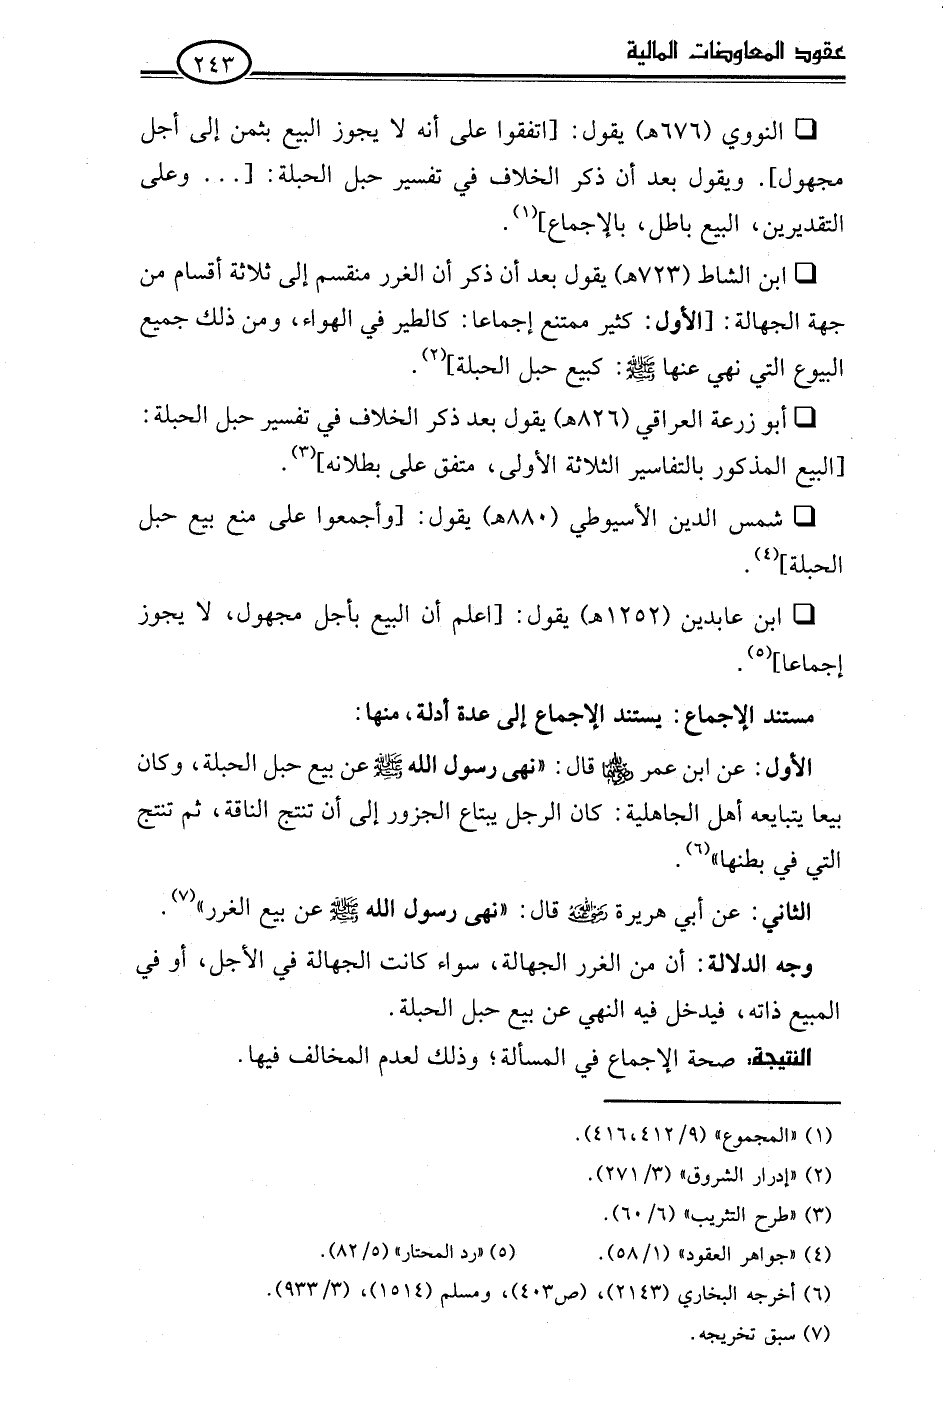 عقود المعاوضات المالية
٢٤٣
❑ النووي (٦٧٦هـ) يقول: [اتفقوا على أنه لا يجوز البيع بثمن إلى أجل
مجهول]. ويقول بعد أن ذكر الخلاف في تفسير حبل الحبلة: [... وعلى
التقديرين، البيع باطل، بالإجماع](١).
❑ ابن الشاط (٧٢٣هـ) يقول بعد أن ذكر أن الغرر منقسم إلى ثلاثة أقسام من
جهة الجهالة: [الأول: كثير ممتنع إجماعا: كالطير في الهواء، ومن ذلك جميع
البيوع التي نهي عنها ﷺ: كبيع حبل الحبلة](٢).
❑ أبو زرعة العراقي (٨٢٦هـ) يقول بعد ذكر الخلاف في تفسير حبل الحبلة:
[البيع المذكور بالتفاسير الثلاثة الأولى، متفق على بطلانه](٣).
❑ شمس الدين الأسيوطي (٨٨٠هـ) يقول: [وأجمعوا على منع بيع حبل
الحبلة](٤).
❑ ابن عابدين (١٢٥٢هـ) يقول: [اعلم أن البيع بأجل مجهول، لا يجوز
إجماعا](٥).
مستند الإجماع: يستند الإجماع إلى عدة أدلة، منها:
الأول: عن ابن عمر رضي الله عنهما قال: «نهى رسول الله ﷺ عن بيع حبل الحبلة، وكان
بيعا يتبايعه أهل الجاهلية: كان الرجل يبتاع الجزور إلى أن تنتج الناقة، ثم تنتج
التي في بطنها»(٦).
الثاني: عن أبي هريرة رضي الله عنه قال: «نهى رسول الله ﷺ عن بيع الغرر»(٧).
وجه الدلالة: أن من الغرر الجهالة، سواء كانت الجهالة في الأجل، أو في
المبيع ذاته، فيدخل فيه النهي عن بيع حبل الحبلة.
النتيجة: صحة الإجماع في المسألة؛ وذلك لعدم المخالف فيها.
(١) «المجموع» (٩/ ٤١٢، ٤١٦).
(٢) «إدرار الشروق» (٣/ ٢٧١).
(٣) «طرح التثريب» (٦/ ٦٠).
(٤) «جواهر العقود» (١/ ٥٨). (٥) «رد المحتار» (٥/ ٨٢).
(٦) أخرجه البخاري (٢١٤٣)، (ص٤٠٣)، ومسلم (١٥١٤)، (٣/ ٩٣٣).
(٧) سبق تخريجه.